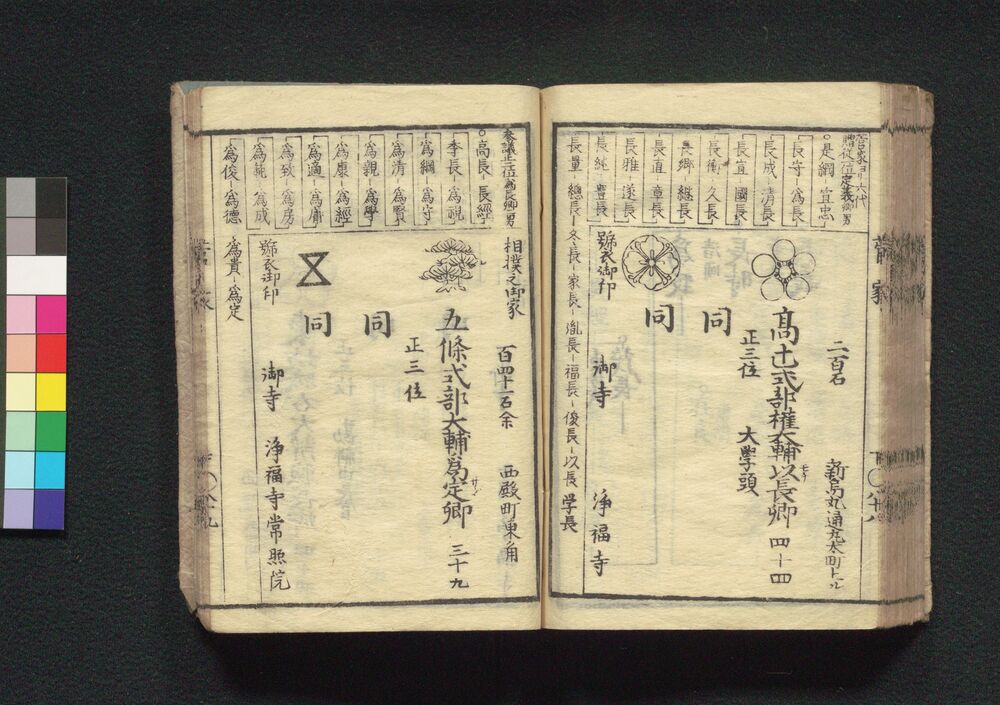 菅家ヨリ六代
贈従一位定義卿男
○是綱 宜忠
長守 為長
長成 清長
長宣 國長
長衡 久長
長郷 継長
長直 章長
長雅 遂長
長純 豊長
長量 總長 冬長 家長 胤長 福長 俊長 以長 学長
二百石
新烏丸通丸太町上ル
高辻式部権大輔以長卿 四十四
正三位
大學頭
同
同
號衣御印
御寺
浄福寺
参議正二位為長卿男
○高長 長經
季長 為視
為綱 為守
為清 為賢
為親 為學
為康 為經
為適 為庸
為致 為房
為範 為成
為俊 為德 為貴 為定
相撲之御家
百四十一石余
西殿町東角
五條式部大輔為定卿 三十九
正三位
同
同
號衣御印
御寺
浄福寺常照院
菅家
八十八
八十九